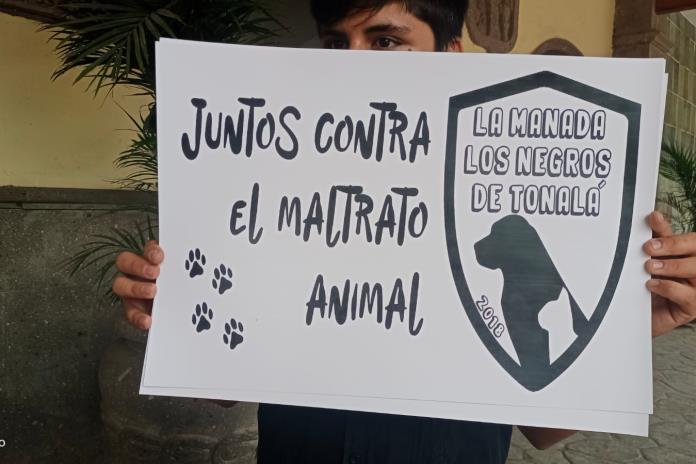 JUNTOS CONTRA
EL MALTRATO
ANIMAL
LA MANADA
LOS NEGROS
DE TONALÁ
2018